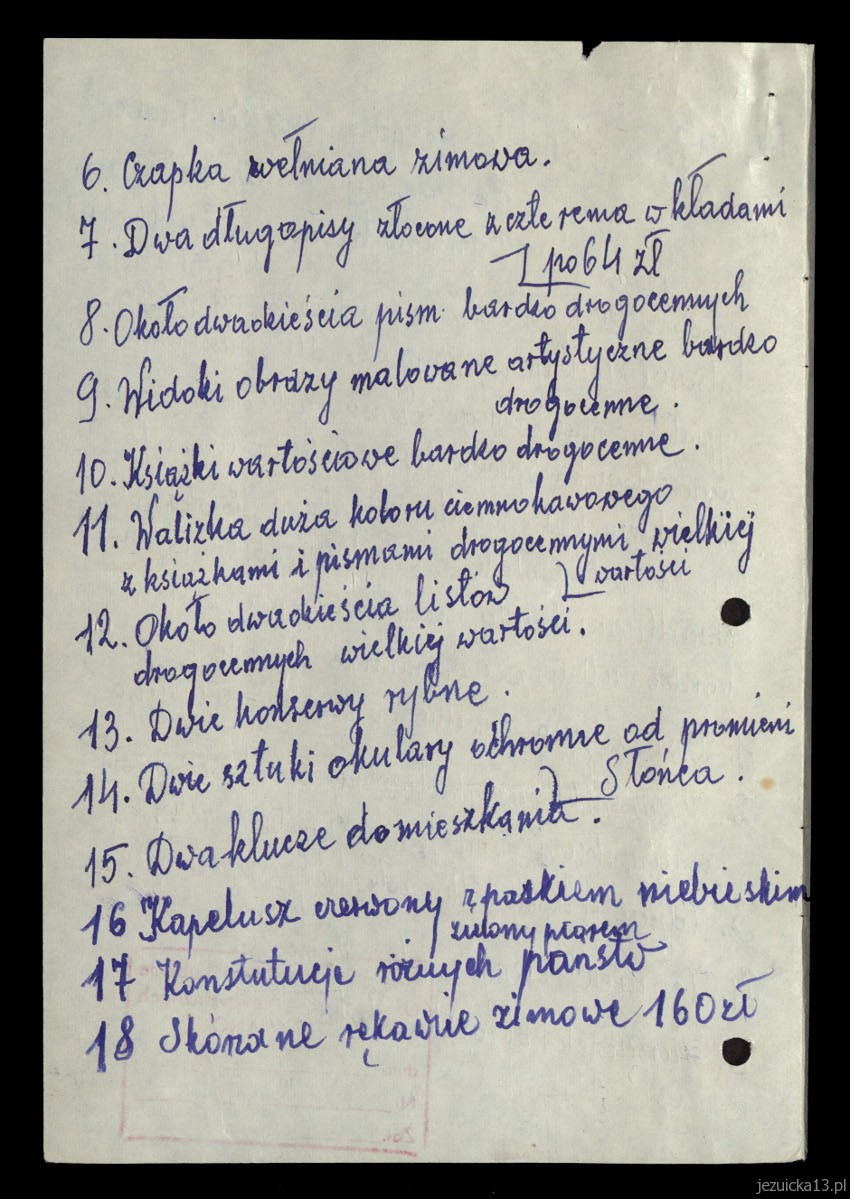 6. Czapka wełniana zimowa.
7. Dwa długopisy złocone z czterema wkładami
po 64 zł
8. Około dwadzieścia pism bardzo drogocennych
9. Widoki obrazy malowane artystyczne bardzo
drogocenne.
10. Książki wartościowe bardzo drogocenne.
11. Walizka duża koloru ciemnokawowego
z książkami i pismami drogocennymi wielkiej
wartości
12. Około dwadzieścia listów
drogocennych wielkiej wartości.
13. Dwie konserwy rybne.
14. Dwie sztuki okulary ochronne od promieni
Słońca.
15. Dwa klucze do mieszkania.
16 Kapelusz czerwony z paskiem niebieskim
zielony piórem
17 Konstutucje różnych państw
18 Skórzane rękawice zimowe 160 zł
jezuicka13.pl